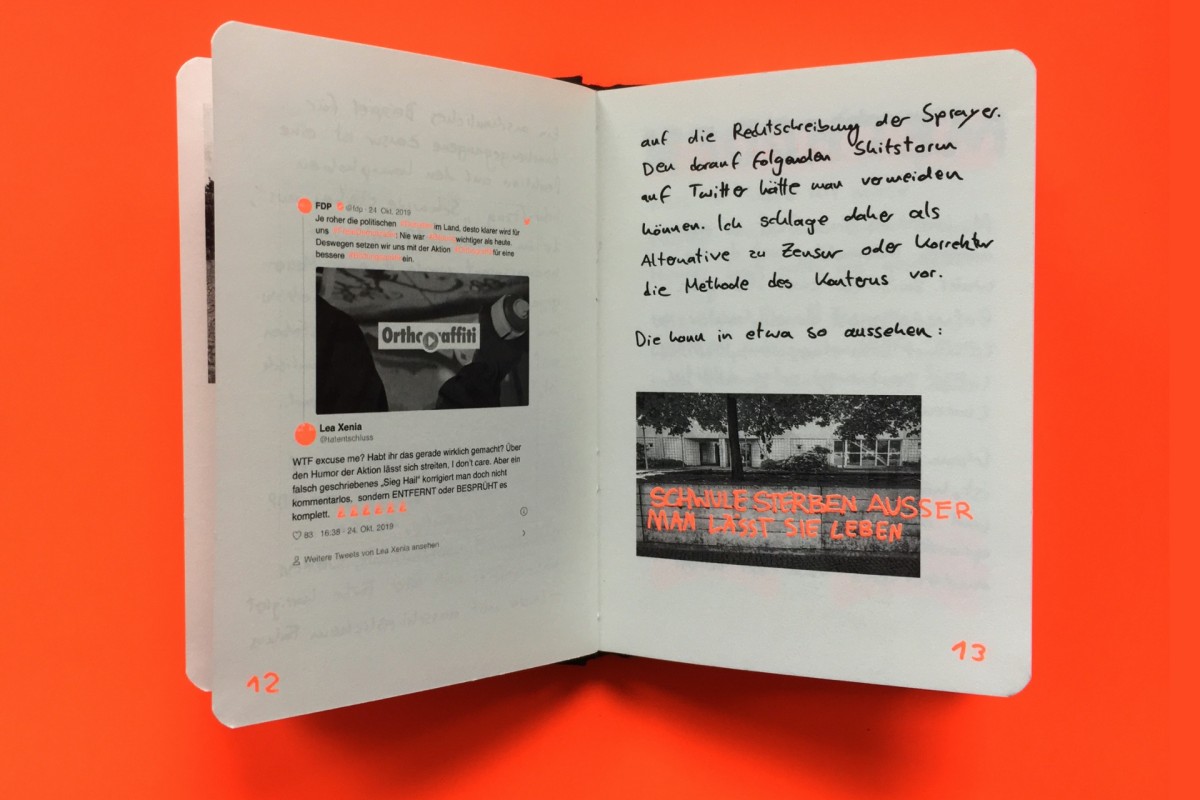 FDP @fdp · 24. Okt. 2019
Je roher die politischen im Land, desto klarer wird für
uns Nie war wichtiger als heute.
Deswegen setzen wir uns mit der Aktion für eine
bessere ein.
Orthograffiti
Lea Xenia
@hatentschluss
WTF excuse me? Habt ihr das gerade wirklich gemacht? Über
den Humor der Aktion lässt sich streiten, I don't care. Aber ein
falsch geschriebenes „Sieg Hail“ korrigiert man doch nicht
kommentarlos, sondern ENTFERNT oder BESPRÜHT es
komplett.
83 16:38 · 24. Okt. 2019
Weitere Tweets von Lea Xenia ansehen
12
auf die Rechtschreibung der Sprayer.
Den darauf folgenden Shitstorm
auf Twitter hätte man vermeiden
können. Ich schlage daher als
Alternative zu Zensur oder Korrektur
die Methode des Konterns vor.
Die kann in etwa so aussehen:
SCHWULE STERBEN AUSSER
MAN LÄSST SIE LEBEN
13